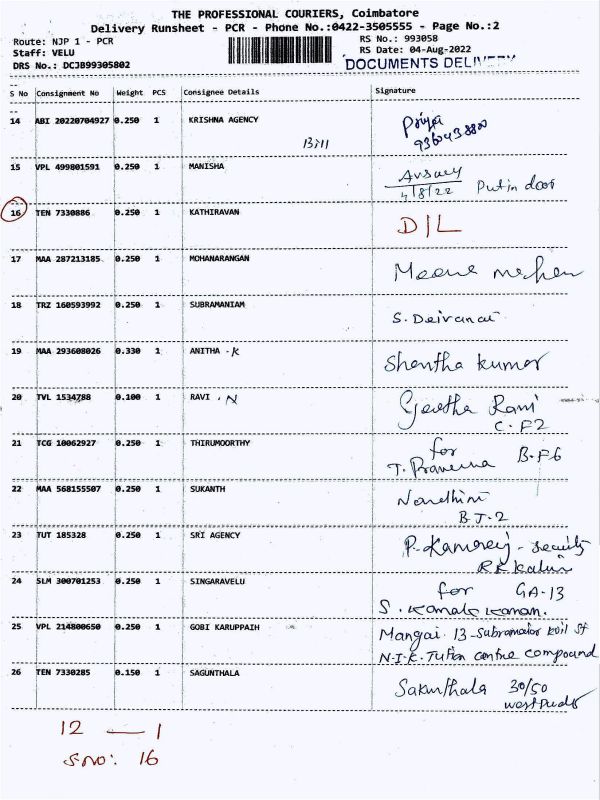 THE PROFESSIONAL COURIERS, Coimbatore
Delivery Runsheet - PCR - Phone No.:0422-3505555 - Page No.:2
Route: NJP 1 - PCR RS No.: 993058
Staff: VELU RS Date: 04-Aug-2022
DRS No.: DCJB99305802 DOCUMENTS DELIVERY
S No Consignment No Weight PCS Consignee Details Signature
14 ABI 20220704927 0.250 1 KRISHNA AGENCY Priya
Bill
15 VPL 499801591 0.250 1 MANISHA
4/8/22 Put in door
16 TEN 7330886 0.250 1 KATHIRAVAN D/L
17 MAA 287213185 0.250 1 MOHANARANGAN Meena mohan
18 TRZ 160593992 0.250 1 SUBRAMANIAM S. Deivanai
19 MAA 293608026 0.330 1 ANITHA - K Shantha kumar
20 TVL 1534788 0.100 1 RAVI . N Geetha Rani
C-F2
21 TCG 10062927 0.250 1 THIRUMOORTHY for B-F6
T. Praveena
22 MAA 568155507 0.250 1 SUKANTH Nandhini
BJ-2
23 TUT 185328 0.250 1 SRI AGENCY P. Kamaraj - Security
24 SLM 300701253 0.250 1 SINGARAVELU for GA-13
S. Kamala kanan.
25 VPL 214800650 0.250 1 GOBI KARUPPAIH Mangai. 13-Subramaior koil St
N.I.K. Tution centre compound
26 TEN 7330285 0.150 1 SAGUNTHALA Sakunthala 30/50
12 — 1
S no: 16